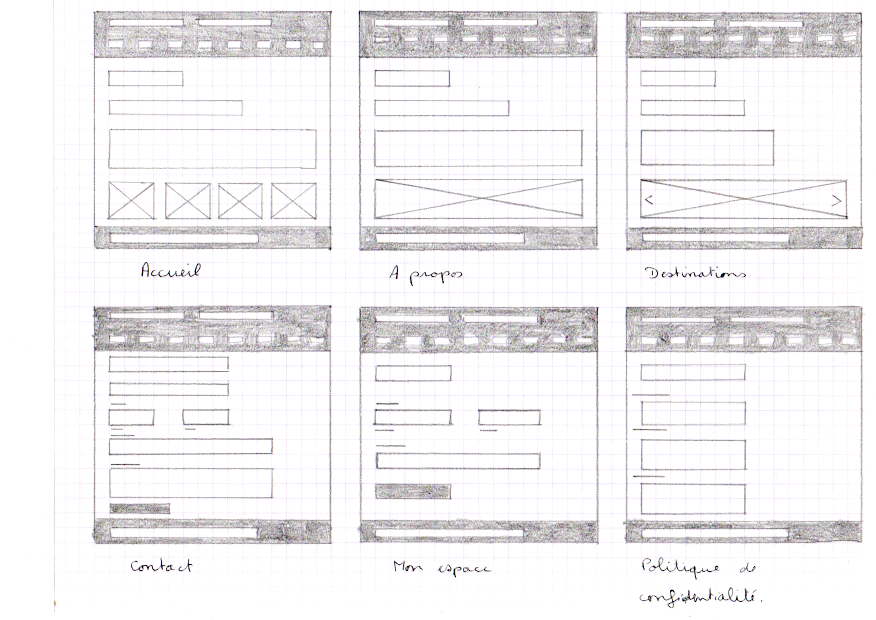 Accueil
A propos
Destinations
Contact
Mon espace
Politique de
confidentialité.